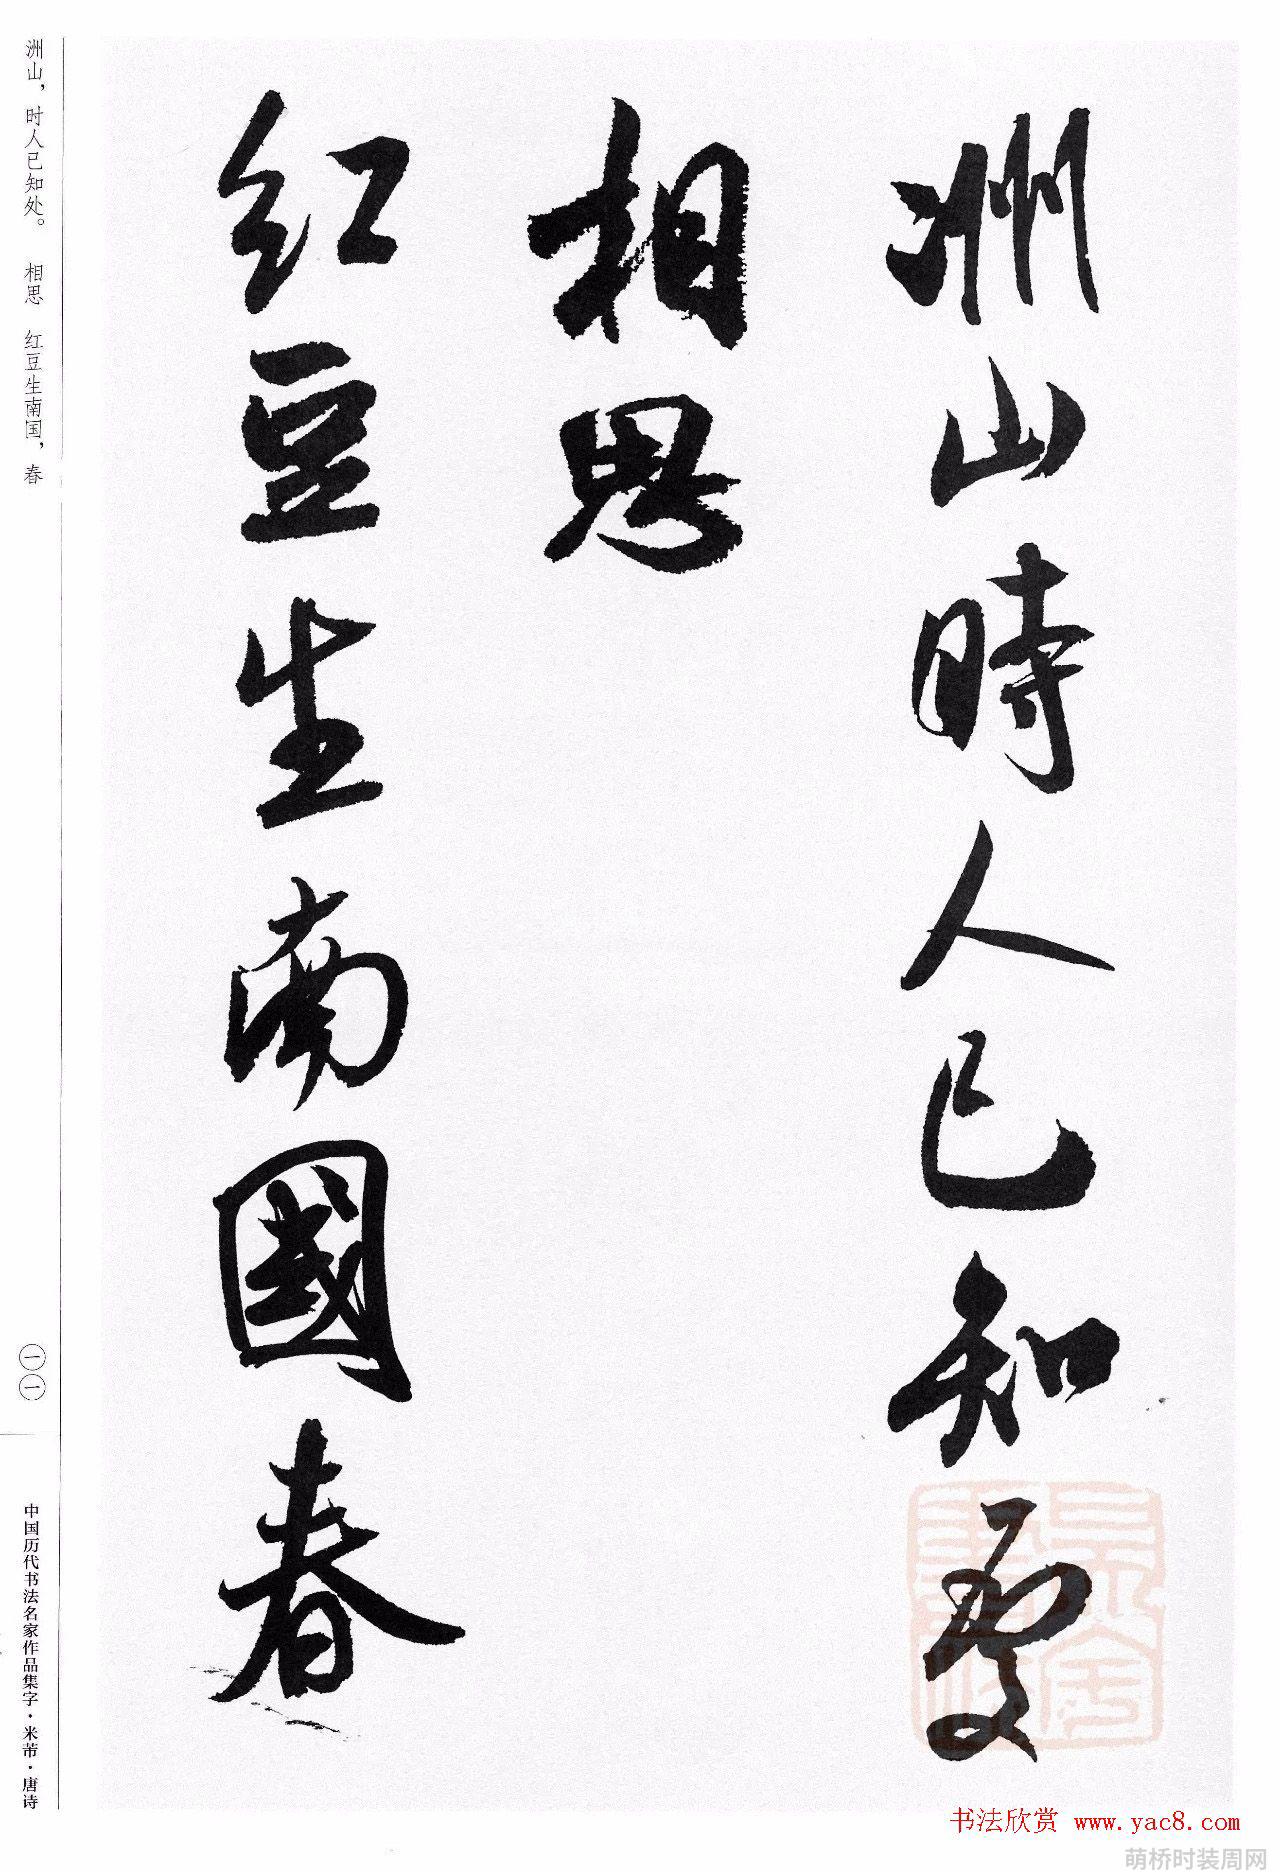 洲山時人已知處
相思
紅豆生南國春
洲山，时人已知处。 相思 红豆生南国，春
一一
中国历代书法名家作品集字·米芾·唐诗
书法欣赏 www.yac8.com
萌桥时装周网